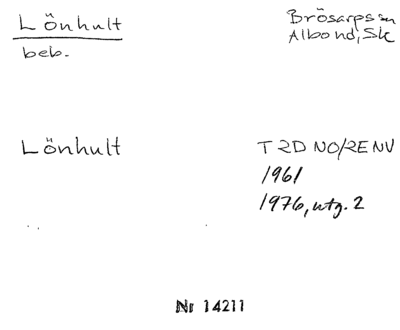 Lönhult
Brösarps sn
Albo hd, Sk
beb.
Lönhult
T 2D NO/2E NV
1961
1976, utg. 2
Nr 14211